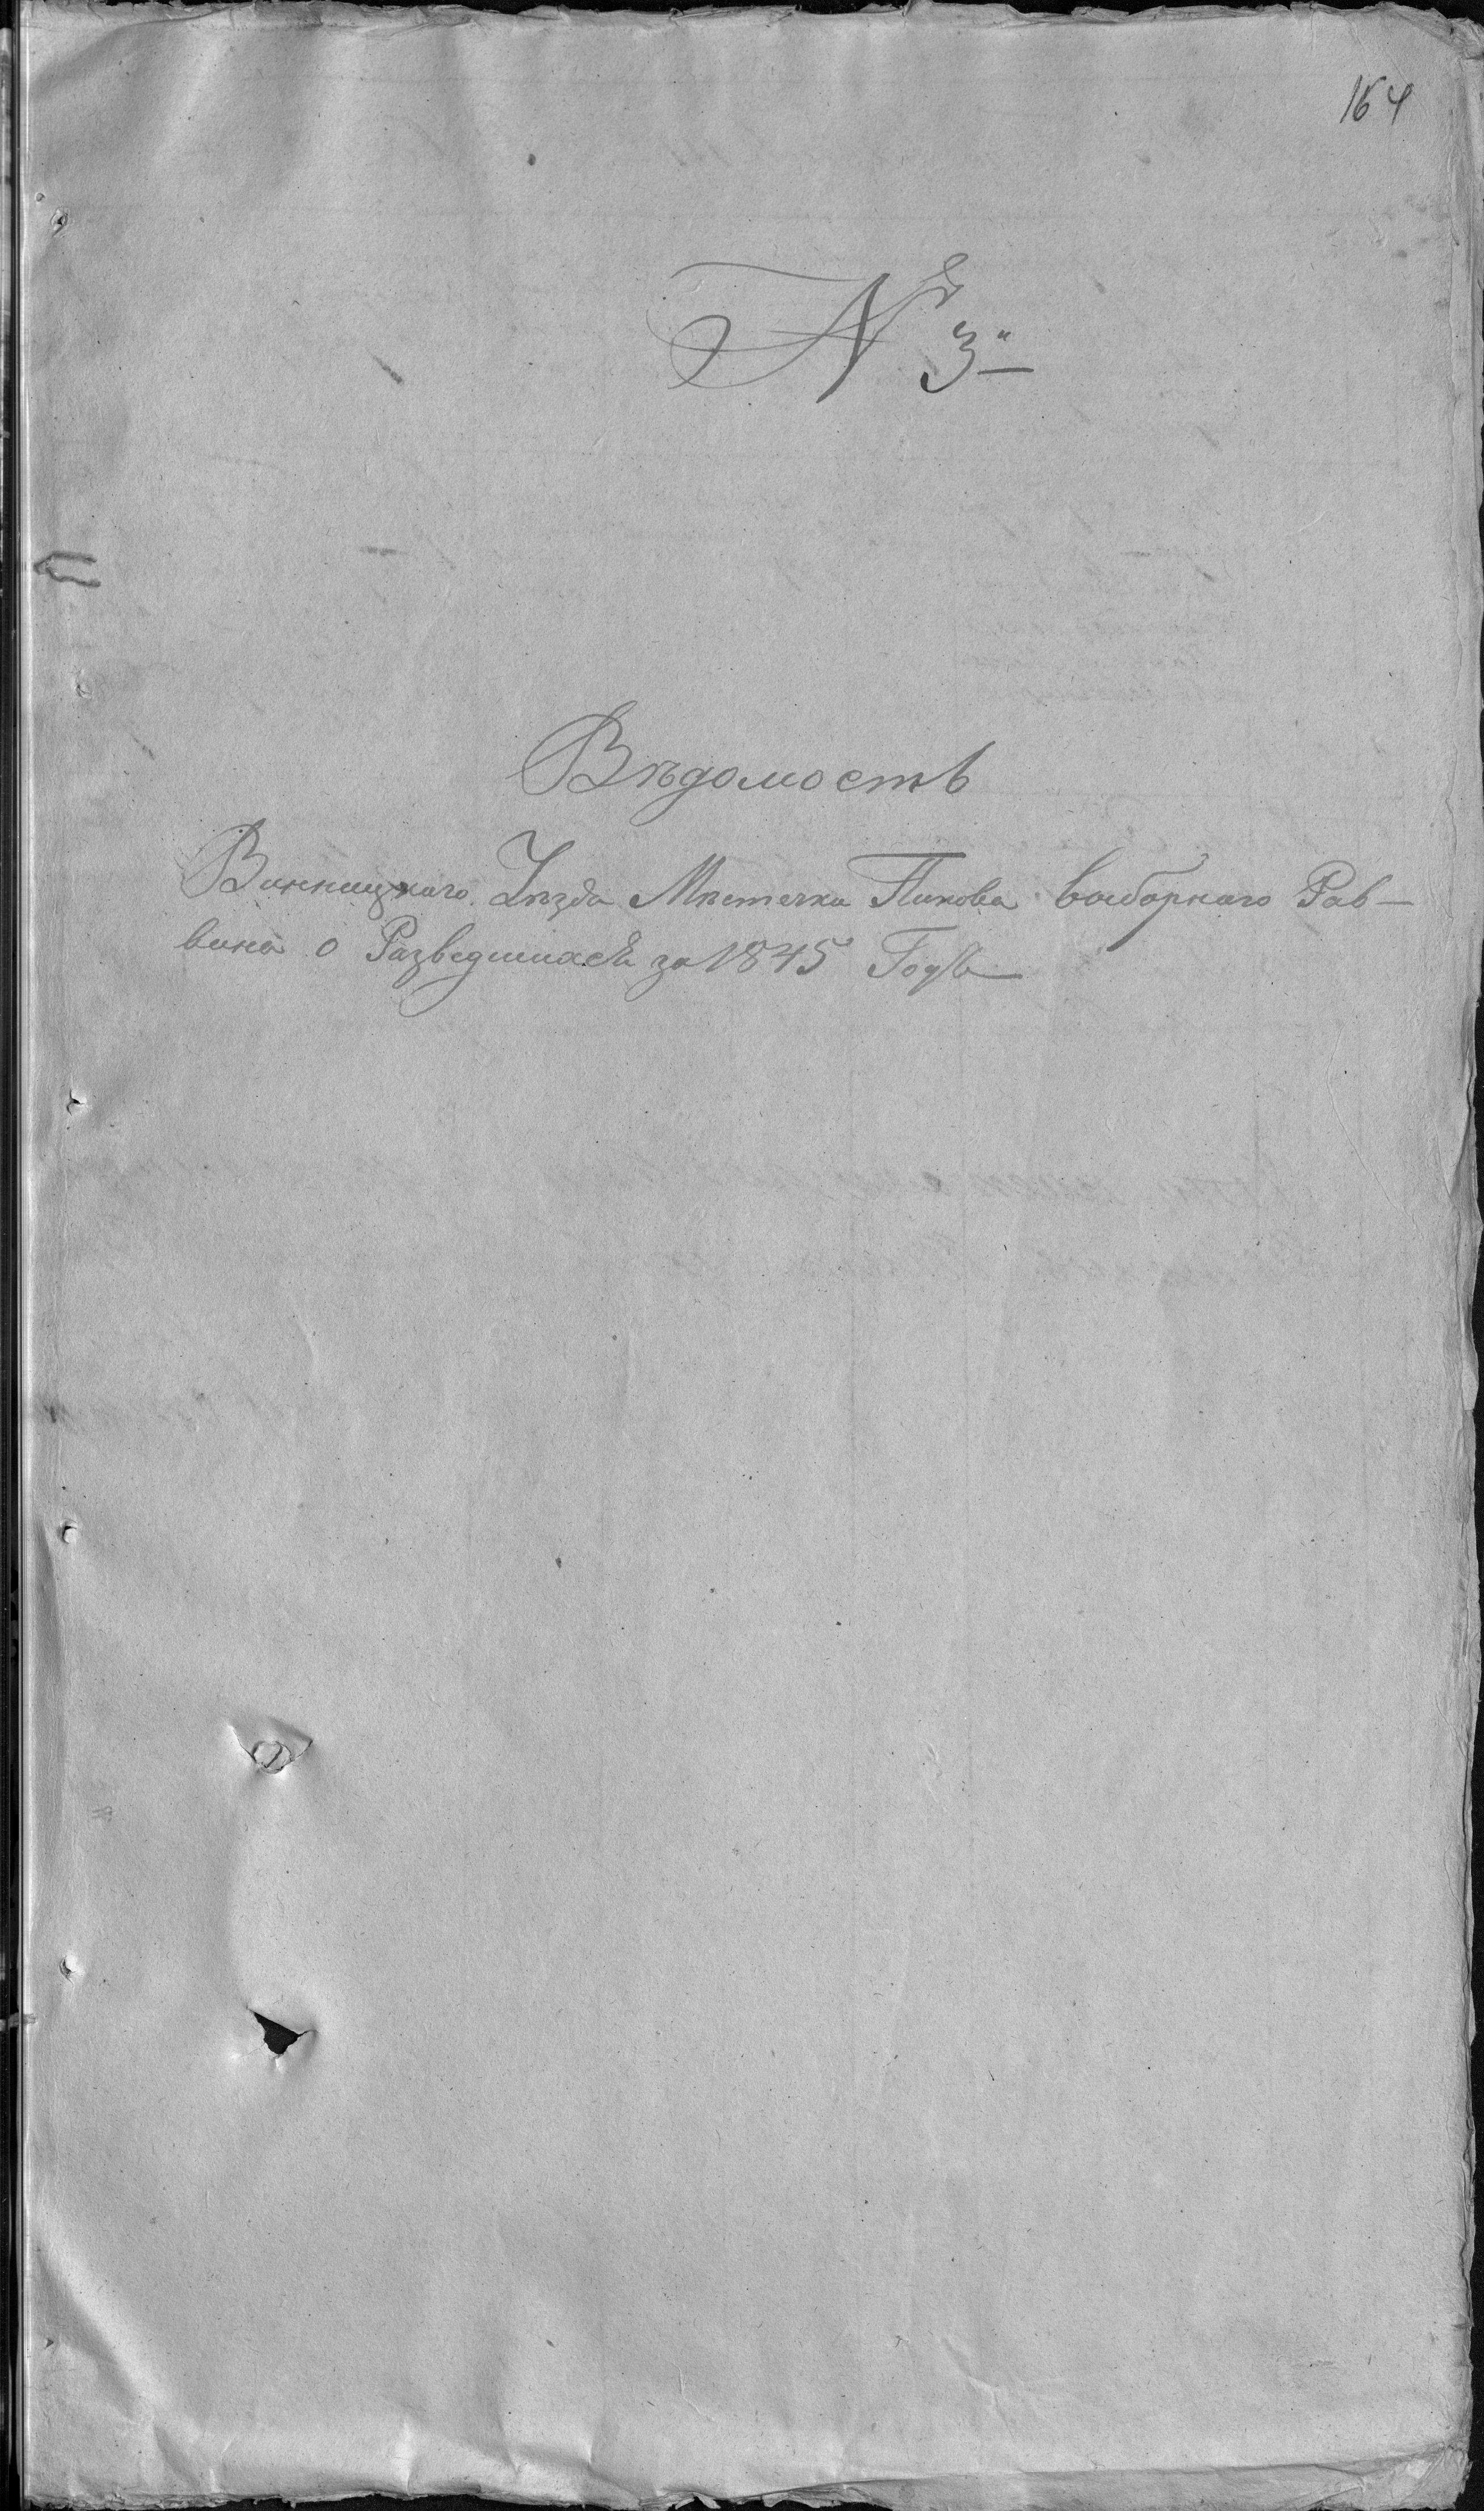 164
№ 3й
Вѣдомость
Винницкаго Уѣзда Мѣстечка Пикова выборнаго Рав-
вина о Разведшихся за 1845 Годъ